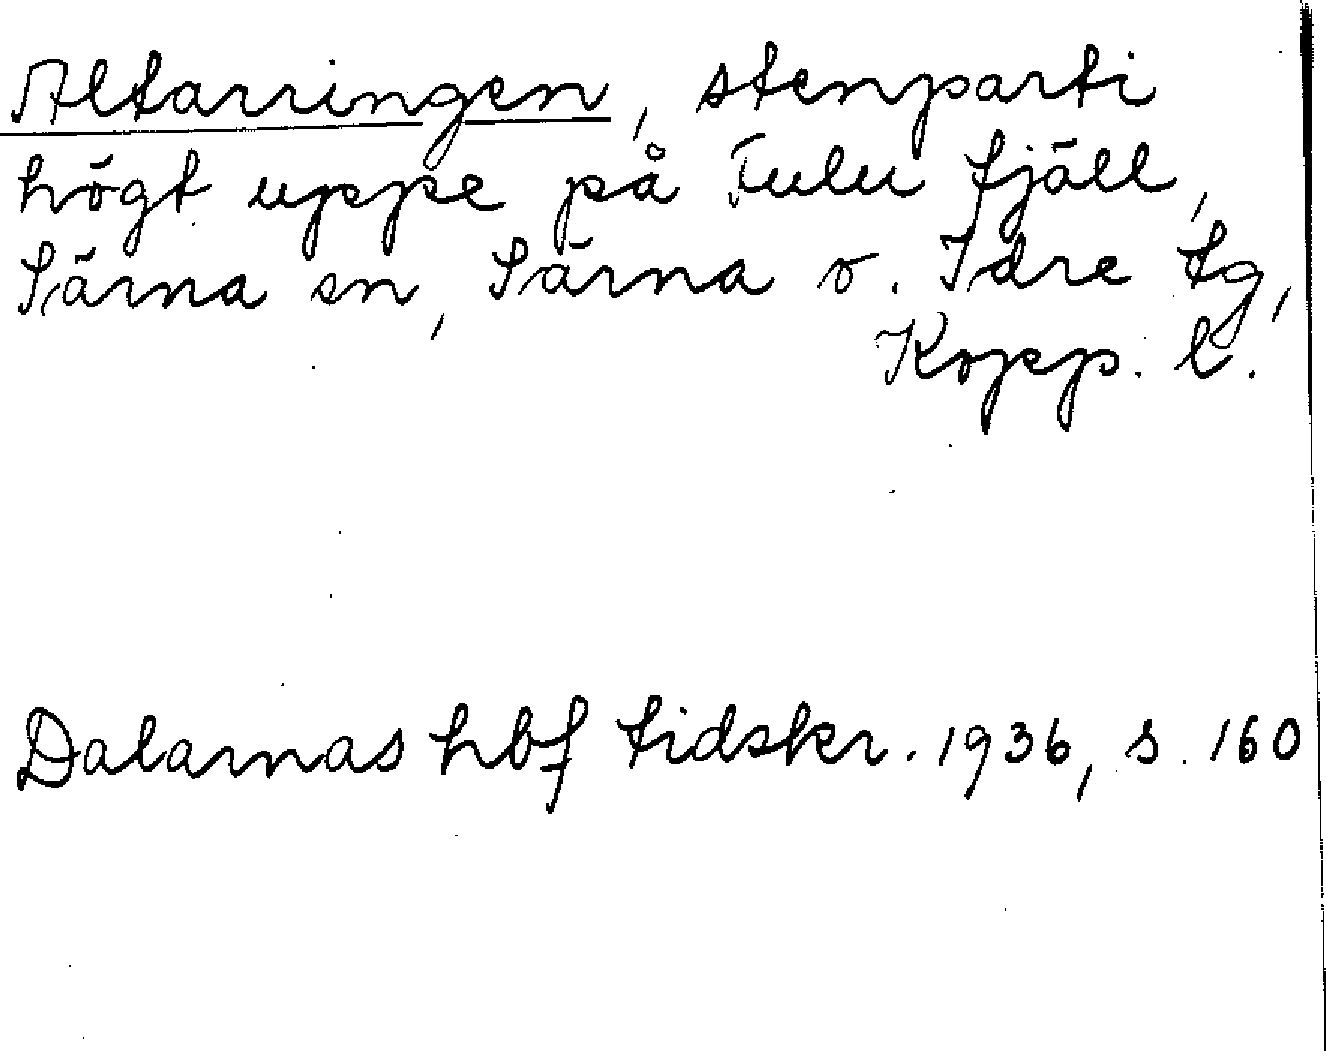 Altarringen, stenparti
högt uppe på Fulu fjäll,
Särna sn, Särna o. Idre tg,
Kopp. l.
Dalarnas hbf tidskr. 1936, s. 160